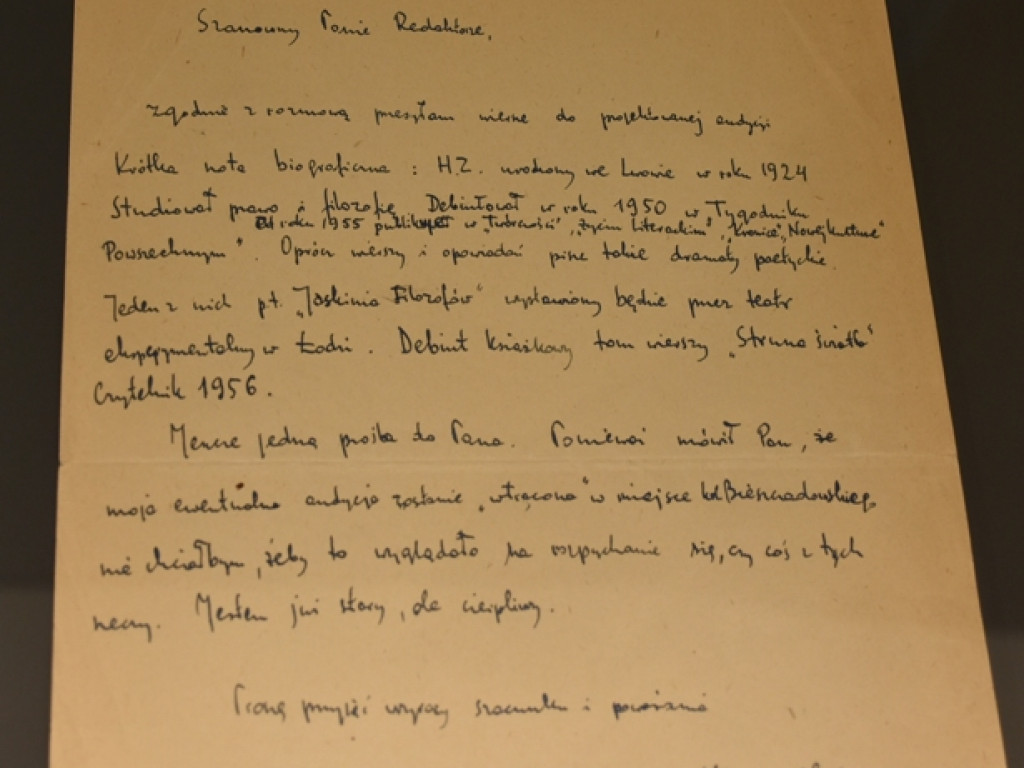 Szanowny Panie Redaktorze,
zgodnie z rozmową przesyłam wiersze do projektowanej audycji
Krótka nota biograficzna : H.Z. urodzony we Lwowie w roku 1924
Studiował prawo i filozofię. Debiutował w roku 1950 w „Tygodniku
Od roku 1955 publikuje w „Twórczości", „Życiu Literackim", „Kronice", „Nowej Kulturze"
Powszechnym". Oprócz wierszy i opowiadań pisze także dramaty poetyckie.
Jeden z nich pt. „Jaskinia Filozofów" wystawiony będzie przez teatr
eksperymentalny w Łodzi. Debiut książkowy tom wierszy „Struna światła"
Czytelnik 1956.
Jeszcze jedna prośba do Pana. Ponieważ mówił Pan, że
moja ewentualna audycja zostanie „wtrącona" w miejsce kol. Bieńkowskiego
nie chciałbym, żeby to wyglądało na rozpychanie się, czy coś z tych
rzeczy. Jestem już stary, ale cierpliwy.
Proszę przyjąć wyrazy szacunku i poważania